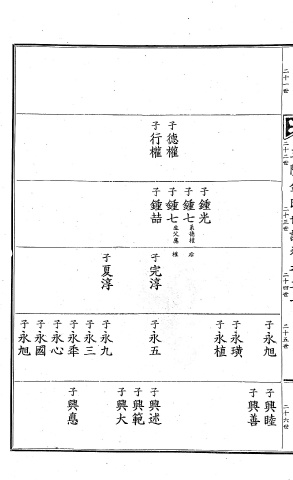 二十一世
二十二世
二十三世
二十四世
二十五世
二十六世
子德權
子行權
子鍾光
子鍾七
子鍾七
子鍾喆
子完淳
子夏淳
子永旭
子永璜
子永植
子永五
子永九
子永三
子永秊
子永心
子永國
子永旭
子興睦
子興善
子興述
子興範
子興大
子興惪